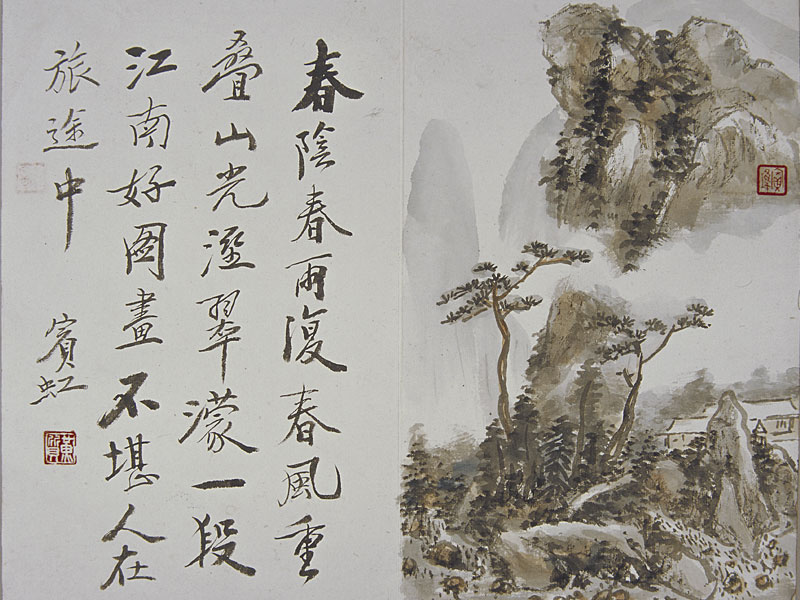 春陰春雨復春風重
叠山光溼翠濛一段
江南好圖畫不堪人在
旅途中
賓虹